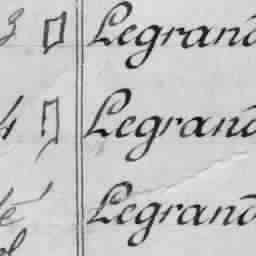 3 Legrand
4 Legrand
té Legrand